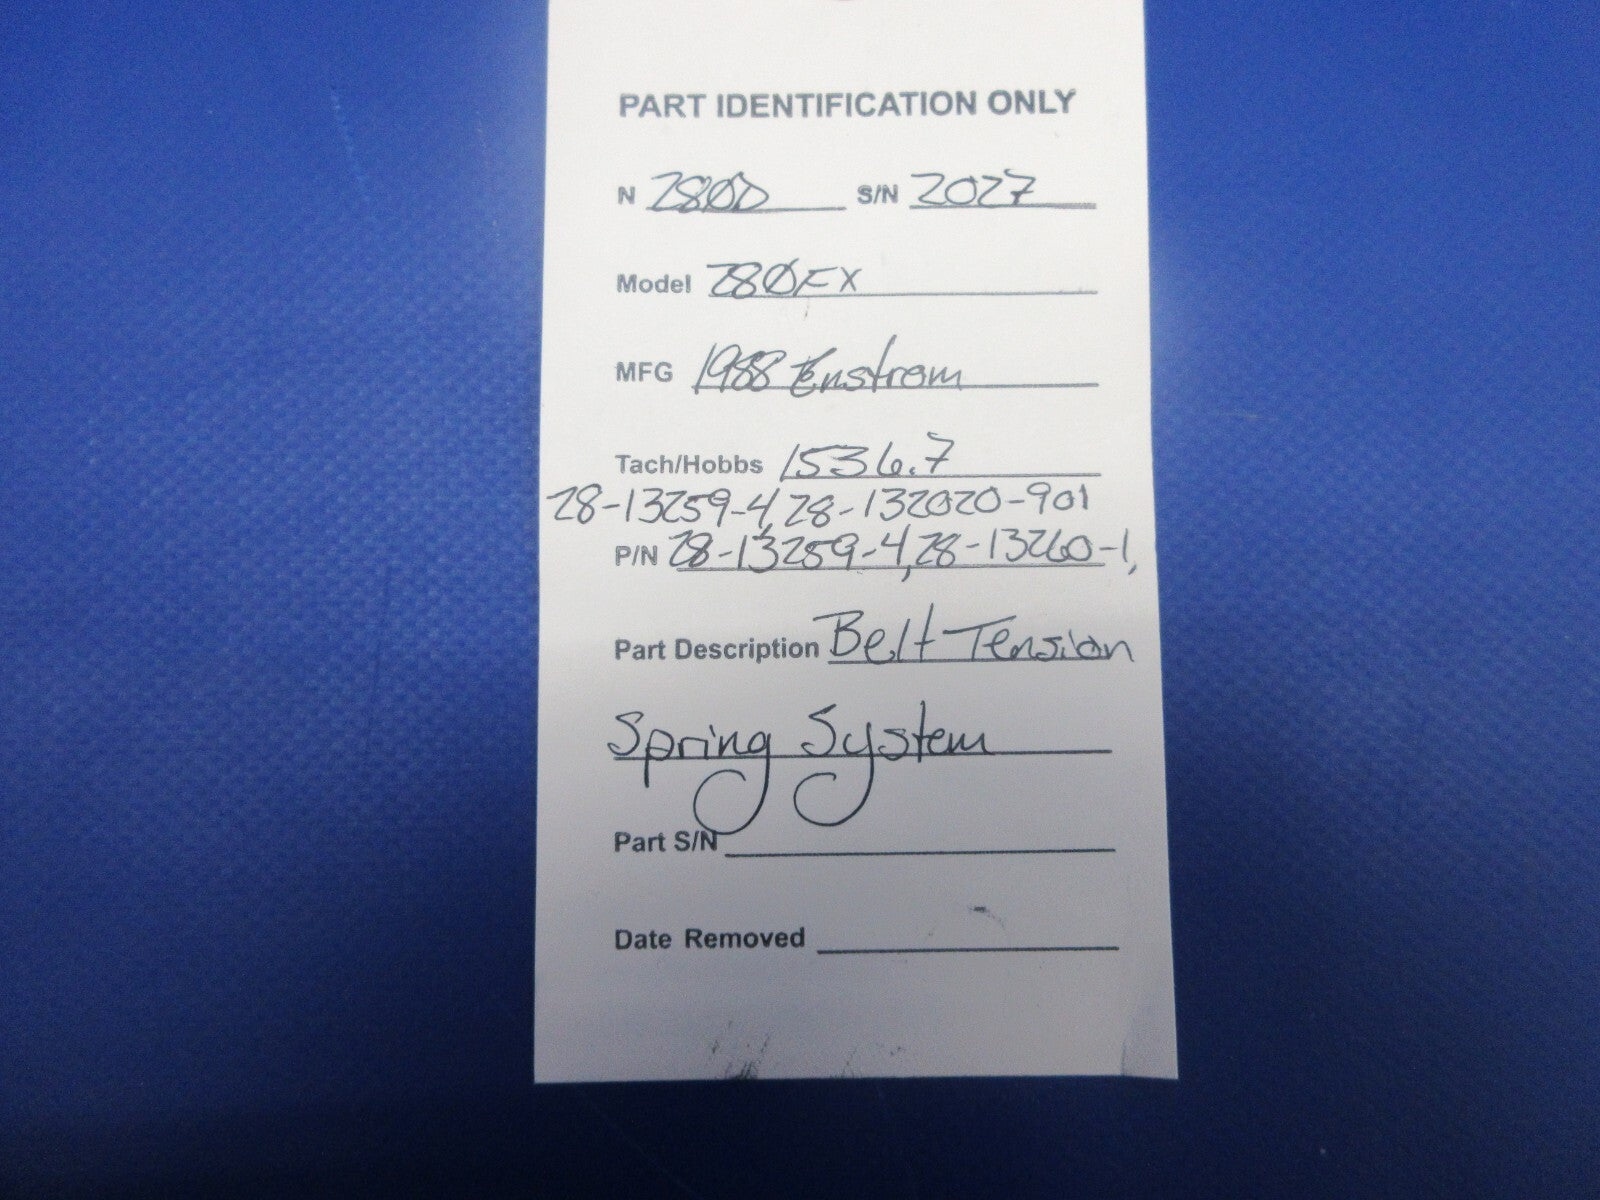 PART IDENTIFICATION ONLY
N 280D S/N 2027
Model 280FX
MFG 1988 Enstrom
Tach/Hobbs 1536.7
28-13259-4, 28-132020-901
P/N 28-13259-4, 28-13260-1,
Part Description Belt Tension
Spring System
Part S/N
Date Removed